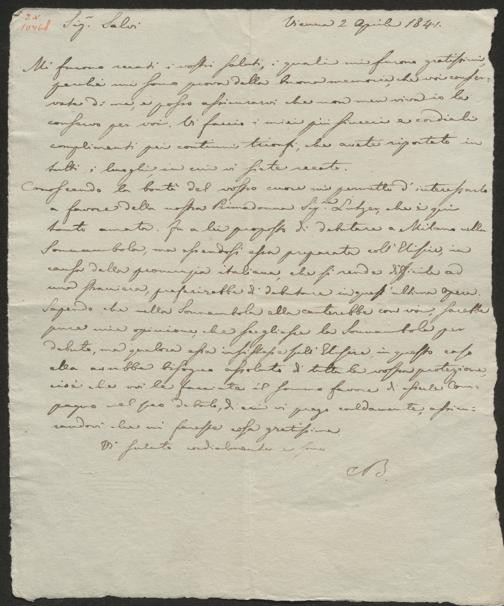 Sigr. Salvi Vienna 2 Aprile 1841.
Mi furono recati i vostri saluti, i quali mi furono gratissimi,
perchè mi sono prova della buona memoria, che voi conser-
vate di me, e posso assicurarvi che non men viva io la
conservo per voi. Vi faccio i miei più sinceri e cordiali
complimenti pei continui trionfi, che avete riportato in
tutti i luoghi in cui vi siete recato.
Conoscendo la bontà del vostro cuore mi permetto d'interessarlo
a favore della nostra Primadonna Sigra. Lutzer, che è qui
tanto amata. Fu a lei proposto di debuttare a Milano nella
Sonnambula, ma essendosi essa preparata coll'Elisire, in
causa della pronunzia italiana, che si rende difficile ad
una straniera, preferirebbe di debuttare in quest'ultima opera.
Sapendo che nella Sonnambula ella canterebbe con voi, sarebbe
pure mia opinione, che scegliesse la Sonnambula per
debutto, ma qualora essa insistesse sull'Elisire, in questo caso
ella avrebbe bisogno assoluto di tutta la vostra protezione,
cioè che voi le facciate il sommo favore di esserle Com-
pagno nel suo debutto, di cui vi prego caldamente, assicu-
randovi che mi sarebbe cosa gratissima
Vi saluto cordialmente e sono